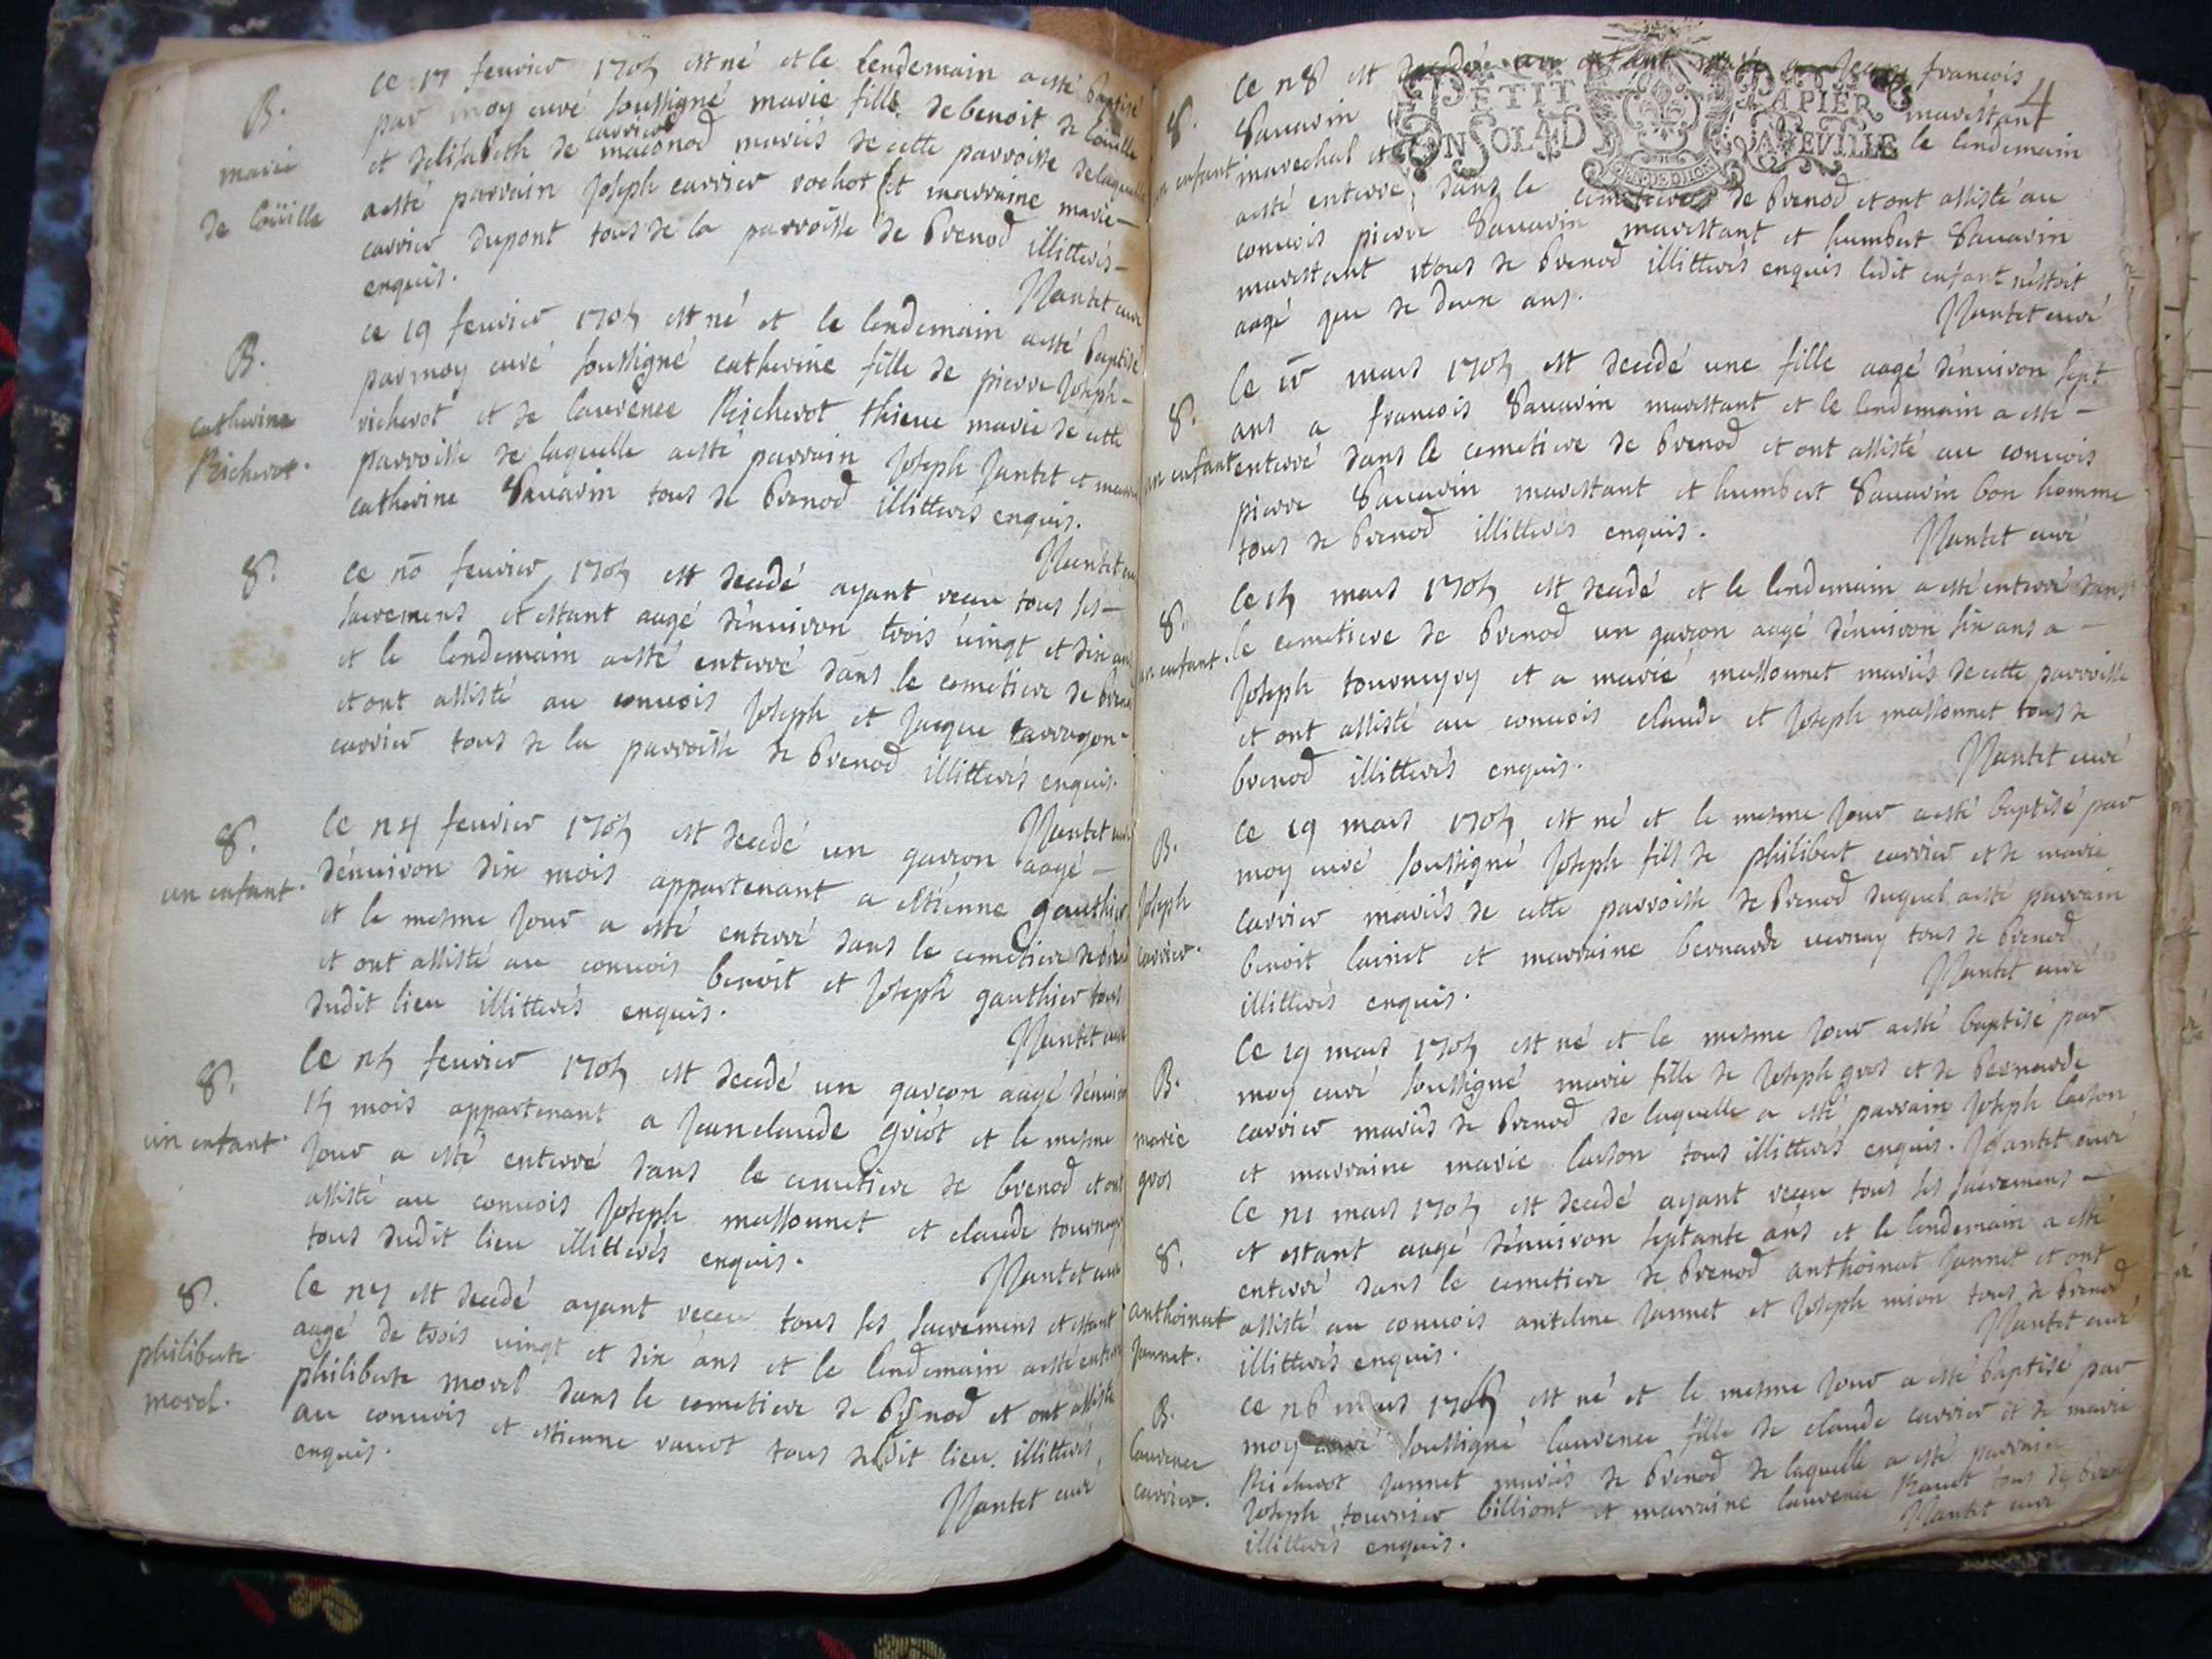 B.
marie
de loüille
ce 17 feurier 1705 est né et le lendemain a esté baptisé
par moy curé soussigné marie fille de benoit de loüille
et delisabeth de carrier maconod mariés de cette parroisse de laquelle
a esté parrain Joseph carrier rochot et marraine marie
carrier dupont tous de la parroisse de brenod illitterés
enquis.
Nantet curé
B.
catherine
Richerot.
ce 19 feurier 1705 est né et le lendemain a esté baptisé
par moy curé soussigné catherine fille de pierre Joseph
richerot et de laurence Richerot thieue marié de cette
parroisse de laquelle a esté parrain Joseph Jantet et
catherine Sauarin tous de brenod illitterés enquis.
Nantet
8.
ce 20 feurier 1705 est decedé ayant receu tous ses
sacremens et estant aagé d'enuiron trois uingt et dix ans
et le lendemain a esté enterré dans le cemetiere de
et ont assisté au conuois Joseph et Jacque
carrier tous de la parroisse de brenod illitterés enquis.
Nantet
8.
un enfant.
Ce 24 feurier 1705 est decedé un garcon aagé
d'enuiron dix mois appartenant a estienne gauthier
et le mesme Jour a esté enterré dans le cemetiere de
et ont assisté au conuois benoit et Joseph gauthier tous
dudit lieu illitterés enquis.
Nantet curé
8.
un enfant.
Ce 25 feurier 1705 est decedé un garcon aagé d'enuiron
15 mois appartenant a Jeanclaude griot et le mesme
Jour a esté enterré dans le cemetiere de brenod et ont
assisté au conuois Joseph massonnet et claude
tous dudit lieu illitterés enquis.
Nantet curé
8.
philiberte
morel.
Ce 27 est decedé ayant receu tous ses sacremens et estant
aagé de trois uingt et dix ans et le lendemain a esté
philiberte morel dans le cemetiere de brenod et ont assisté
au conuois et estienne rauot tous dudit lieu illitterés
enquis.
Nantet curé
PETIT PAPIER
4
8.
un enfant
Ce 28 est decedé un enfant a Jean francois
Sauarin marestant
marechal et le lendemain
a esté enterré dans le cemetiere de brenod et ont assisté au
conuois pierre Sauarin marestant et humbert Sauarin
marestant tous de brenod illitterés enquis ledit enfant n'estoit
aagé que de deux ans.
Nantet curé
8.
un enfant
Ce mars 1705 est decedé une fille aagé d'enuiron sept
ans a francois Sauarin marestant et le lendemain a esté
enterré dans le cemetiere de brenod et ont assisté au conuois
pierre Sauarin marestant et humbert Sauarin bon homme
tous de brenod illitterés enquis.
Nantet curé
8.
un enfant.
Ce 15 mars 1705 est decedé et le lendemain a esté enterré dans
le cemetiere de brenod un garcon aagé d'enuiron six ans a
Joseph et a marie massonnet mariés de cette parroisse
et ont assisté au conuois claude et Joseph massonnet tous de
brenod illitterés enquis.
Nantet curé
B.
Joseph
carrier.
Ce 19 mars 1705 est né et le mesme Jour a esté baptisé par
moy curé soussigné Joseph fils de philibert carrier et de marie
carrier mariés de cette parroisse de brenod duquel a esté parrain
benoit lainet et marraine bernarde uernay tous de brenod
illitterés enquis.
Nantet curé
B.
marie
gros
Ce 19 mars 1705 est né et le mesme Jour a esté baptisé par
moy curé soussigné marie fille de Joseph gros et de bernarde
carrier mariés de brenod de laquelle a esté parrain Joseph
et marraine marie tous illitterés enquis. Nantet curé
8.
anthoinat
Jannet.
Ce 21 mars 1705 est decedé ayant receu tous ses sacremens
et estant aagé d'enuiron septante ans et le lendemain a esté
enterré dans le cemetiere de brenod anthoinat Jannet et ont
assisté au conuois antelme Jannet et Joseph mion tous de brenod
illitterés enquis.
Nantet curé
B.
laurence
carrier.
Ce 26 mars 1705 est né et le mesme Jour a esté baptisé par
moy curé soussigné laurence fille de claude carrier et de marie
Richerot Jannet mariés de brenod de laquelle a esté parrain
Joseph tournier billiont et marraine laurence Rauot tous de
illitterés enquis.
Nantet curé